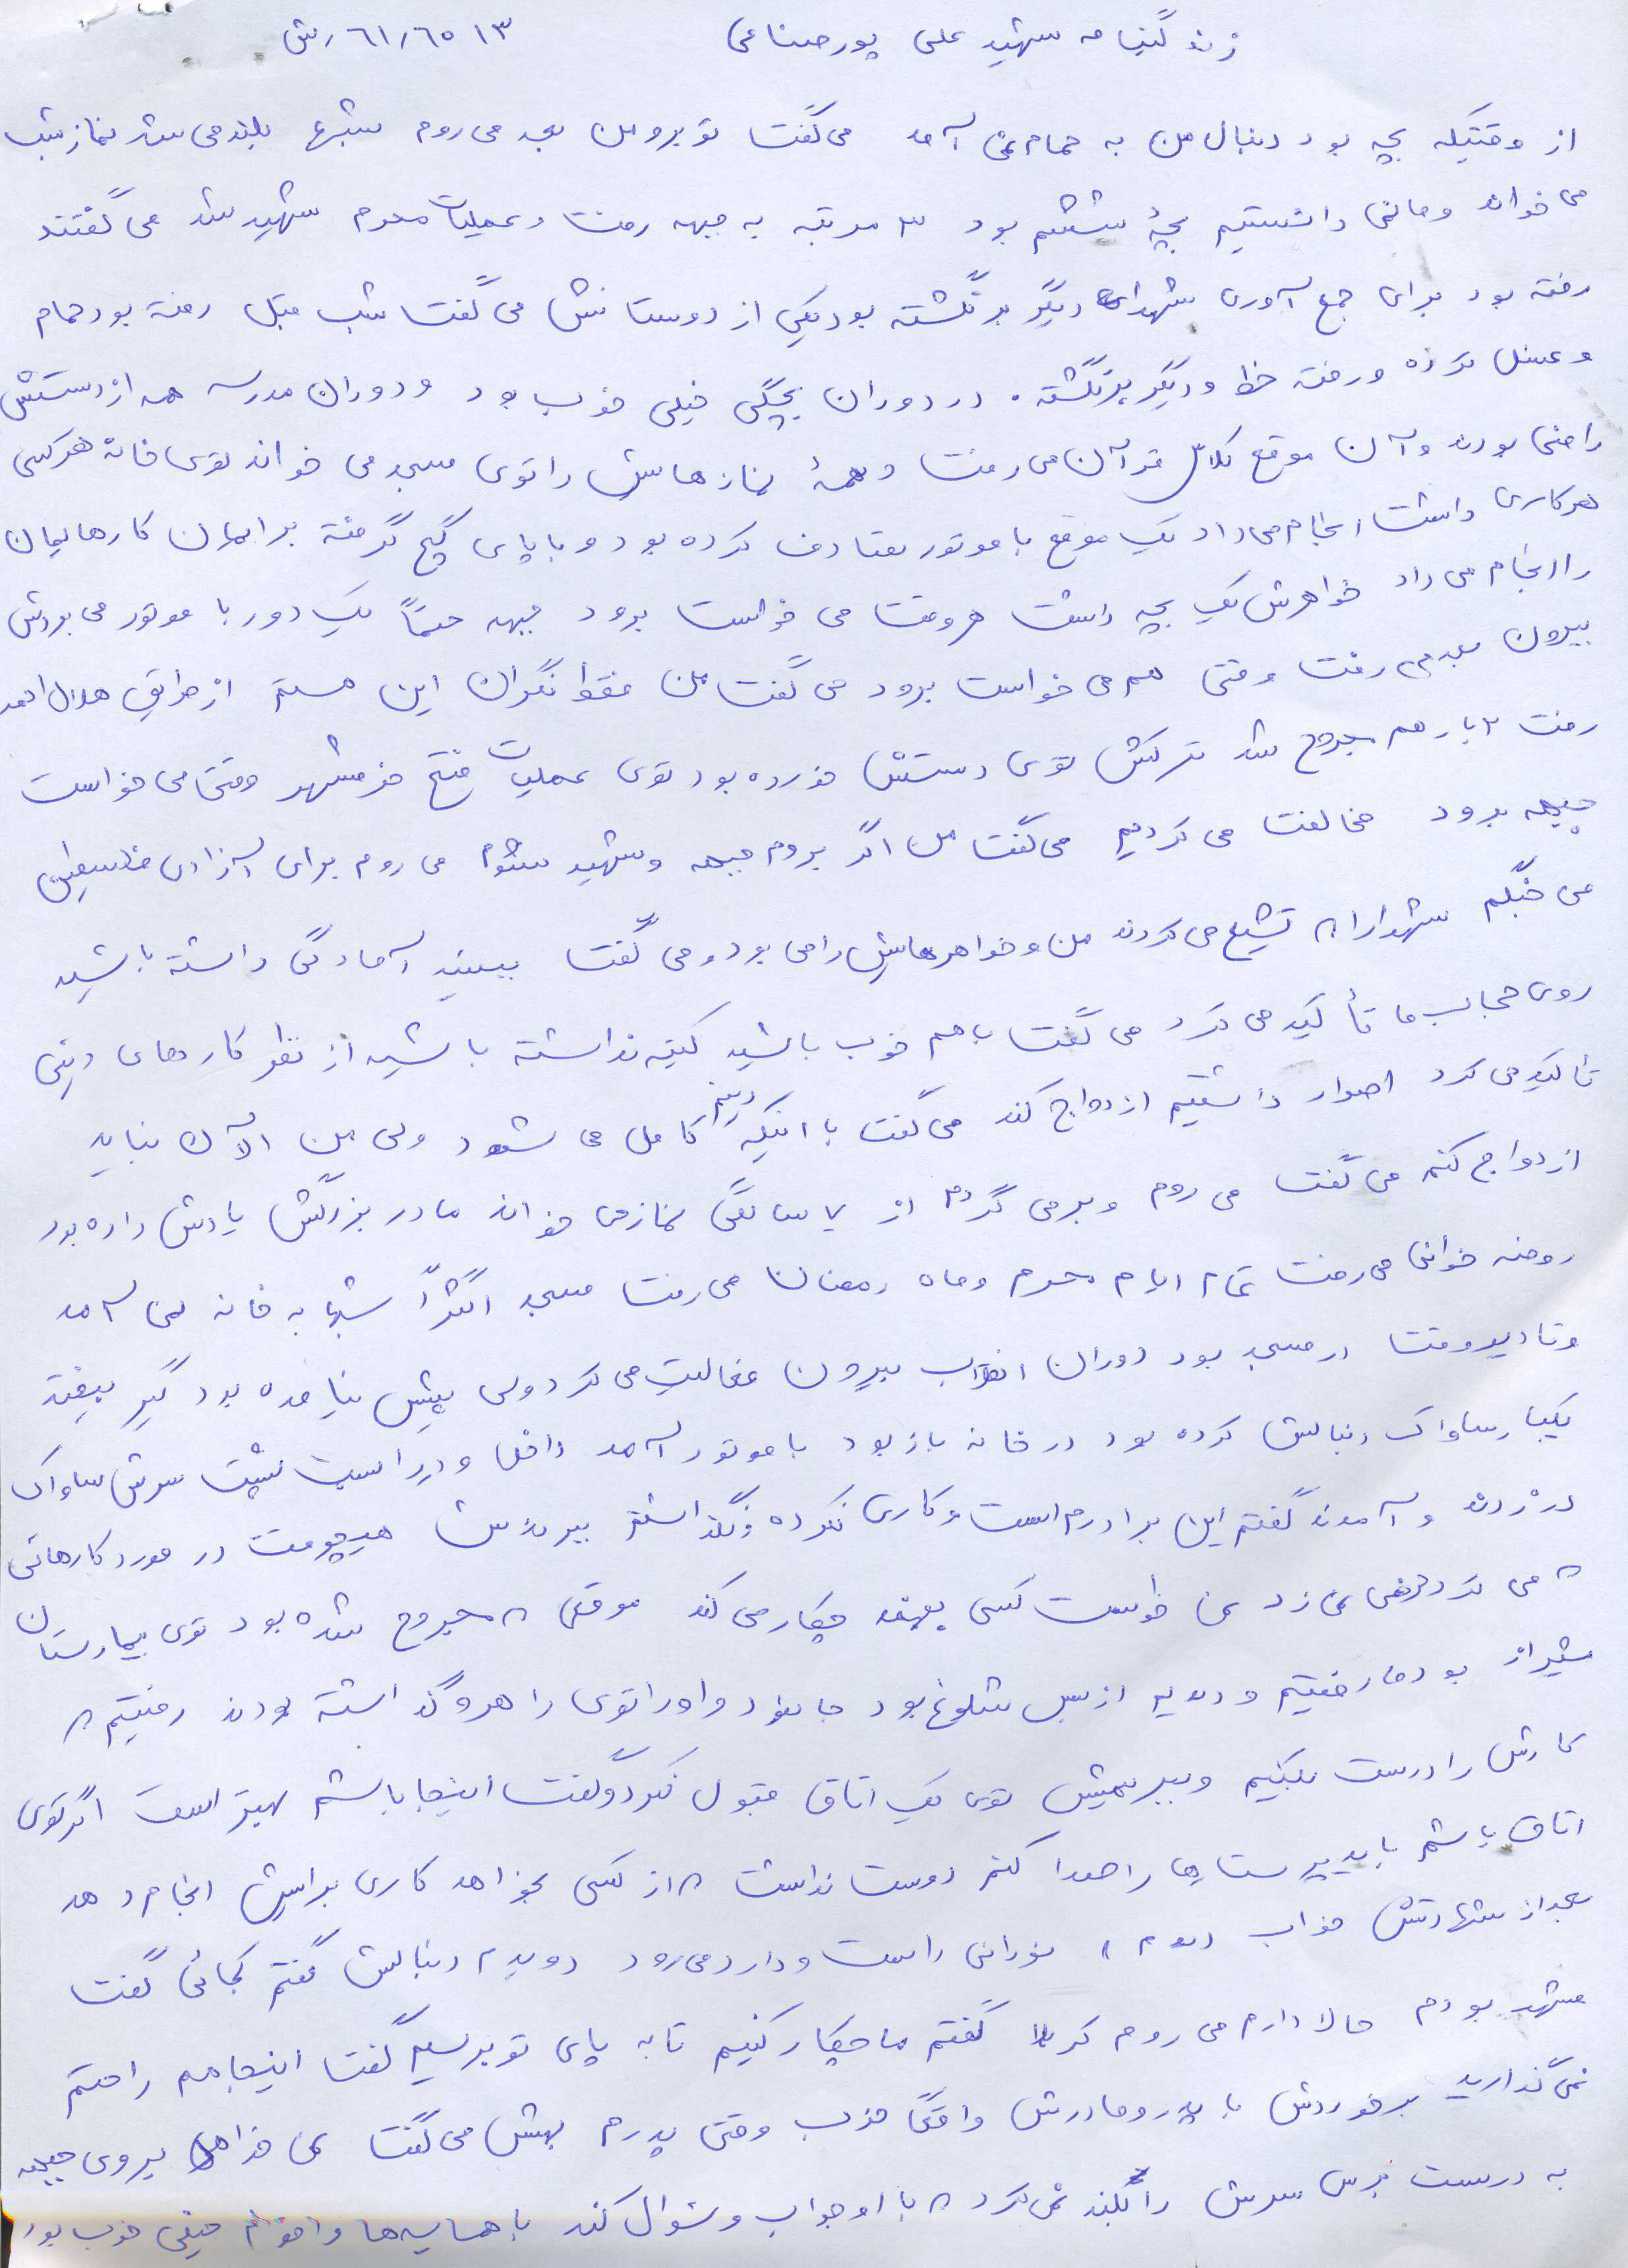 زندگینامه شهید علی پورصناعی ۶۱٫۶۵۱۳ رش
از وقتیکه بچه بود دنبال من به حمام نمی آمد می گفت تو برو من بعد می روم شبها بلند می شد نماز شب
می خواند و ما نمی دانستیم بچهٔ ششم بود ۳ مرتبه به جبهه رفت و عملیات محرم شهید شد می گفتند
رفته بود برای جمع آوری شهدای دیگر برنگشته بود یکی از دوستانش می گفت شب قبل رفته بود حمام
و غسل کرده و رفته خط و دیگر برنگشته. در دوران بچگی خیلی خوب بود و دوران مدرسه همه از دستش
راضی بودند و آن موقع کلاس قرآن می رفت و همهٔ نمازهایش را توی مسجد می خواند توی خانه هرکسی
هرکاری داشت انجام می داد یک موقع با موتور تصادف کرده بود و با پای گچ گرفته برایمان کارهایمان
را انجام می داد خواهرش یک بچه داشت هر وقت می خواست برود جبهه حتماً یک دور با موتور می بردش
بیرون بعد می رفت وقتی هم می خواست برود می گفت من فقط نگران این هستم از طریق هلال احمر
رفت ۲ بار هم مجروح شد ترکش توی دستش خورده بود توی عملیات فتح خرمشهر وقتی می خواست
جبهه برود مخالفت می کردیم می گفت من اگر بروم جبهه و شهید نشوم می روم برای آزادی فلسطین
می جنگم شهدا را که تشیع می کردند من و خواهرهایش را می برد و می گفت ببینید آمادگی داشته باشید
روی حجاب ما تأکید می کرد می گفت با هم خوب باشید کینه نداشته باشید از نظر کارهای دینی
تاکید می کرد اصرار داشتیم ازدواج کند می گفت با اینکه دینم کامل می شود ولی من الآن نباید
ازدواج کنم می گفت می روم و برمی گردم از ۷ سالگی نماز می خواند مادربزرگش یادش داده بود
روضه خوانی می رفت تمام ایام محرم و ماه رمضان می رفت مسجد اکثراً شبها به خانه نمی آمد
و تا دیروقت در مسجد بود دوران انقلاب بیرون فعالیت می کرد ولی پیش نیامده بود گیر بیفتد
یکبار ساواک دنبالش کرده بود در خانه باز بود با موتور آمد داخل و در را بست پشت سرش ساواک
در زدند و آمدند گفتم این برادرم است و کاری نکرده و نگذاشتم ببرندش هیچوقت در مورد کارهائی
که می کرد حرفی نمی زد نمی خواست کسی بفهمد چکار می کند موقعی که مجروح شده بود توی بیمارستان
شیراز بود ما رفتیم و دیدیم از بس شلوغ بود جا نبود و او را توی راهرو گذاشته بودند رفتیم که
کارش را درست بکنیم و ببریمش توی یک اتاق قبول نکرد و گفت اینجا باشم بهتر است اگر توی
اتاق باشم باید پرستارها را صدا کنم دوست نداشت که از کسی بخواهد کاری برایش انجام دهد
بعد از شهادتش خواب دیدم نورانی راست و دارد می رود دویدم دنبالش گفتم کجائی گفت
مشهد بودم حالا دارم می روم کربلا گفتم ما چکار کنیم تا به پای تو برسیم گفت اینجا هم راحتم
نمی گذارید برخوردش با پدر و مادرش واقعاً خوب وقتی پدرم بهش می گفت نمی خواهد بروی جبهه
به درست برس سرش را بلند نمی کرد که با او جواب و سئوال کند با همسایه ها و اقوام خیلی خوب بود